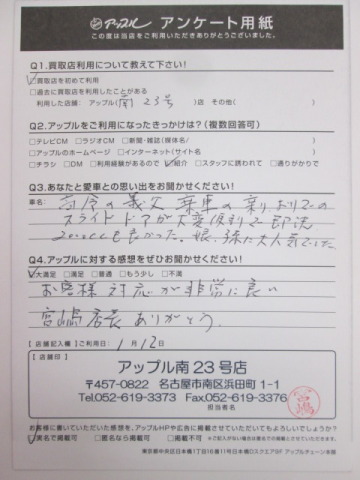 アップル アンケート用紙
この度は当店をご利用いただきありがとうございました。
Q1.買取店利用について教えて下さい!
買取店を初めて利用
過去に買取店を利用したことがある
利用した店舗: アップル( 南23号 )店 その他( )
Q2.アップルをご利用になったきっかけは?(複数回答可)
テレビCM ラジオCM 新聞・雑誌(媒体名/ )
アップルのホームページ インターネット(サイト名 )
チラシ DM 利用経験があるので 紹介 スタッフに誘われて 通りがかりで
Q3.あなたと愛車との思い出をお聞かせください!
車名:
の義父 乗車の乗りおりでの
スライドドアが大変便利で即決
2000ccも良かった。娘、孫に大人気でした
Q4.アップルに対する感想をぜひお聞かせください!
大満足 満足 普通 もう少し 不満
お客様対応が非常に良い
宮嶋店長ありがとう。
【店舗記入欄】ご利用日: 1月12日
【店舗印】
アップル南23号店
〒457-0822 名古屋市南区浜田町1-1
Tel.052-619-3373 Fax.052-619-3376
担当者名
お客様に書いていただいた感想を、アップルHPや広告に掲載させていただいてもよろしいでしょうか?
実名で掲載可 匿名なら掲載可 掲載不可 ※ご記入がない場合は匿名での掲載とさせていただきます。
東京都中央区日本橋1丁目16番11号日本橋Dスクエア9F アップルチェーン本部